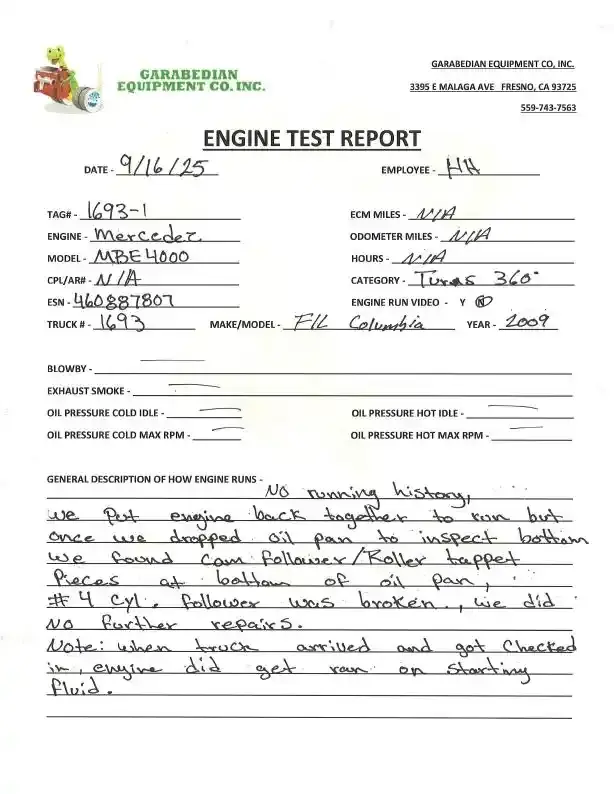 GARABEDIAN
EQUIPMENT CO. INC.
GARABEDIAN EQUIPMENT CO, INC.
3395 E MALAGA AVE FRESNO, CA 93725
559-743-7563
ENGINE TEST REPORT
DATE - 9/16/25 EMPLOYEE - HH
TAG# - 1693-1 ECM MILES - N/A
ENGINE - Mercedez ODOMETER MILES - N/A
MODEL - MBE4000 HOURS - N/A
CPL/AR# - N/A CATEGORY - Turns 360°
ESN - 460887807 ENGINE RUN VIDEO - Y N
TRUCK # - 1693 MAKE/MODEL - F/L Columbia YEAR - 2009
BLOWBY -
EXHAUST SMOKE -
OIL PRESSURE COLD IDLE - OIL PRESSURE HOT IDLE -
OIL PRESSURE COLD MAX RPM - OIL PRESSURE HOT MAX RPM -
GENERAL DESCRIPTION OF HOW ENGINE RUNS -
No running history,
we put engine back together to run but
once we dropped oil pan to inspect bottom
we found cam follower/Roller tappet
Pieces at bottom of oil pan,
#4 cyl. follower was broken, we did
NO further repairs.
Note: when truck arrived and got checked
in, engine did get ran on starting
fluid.